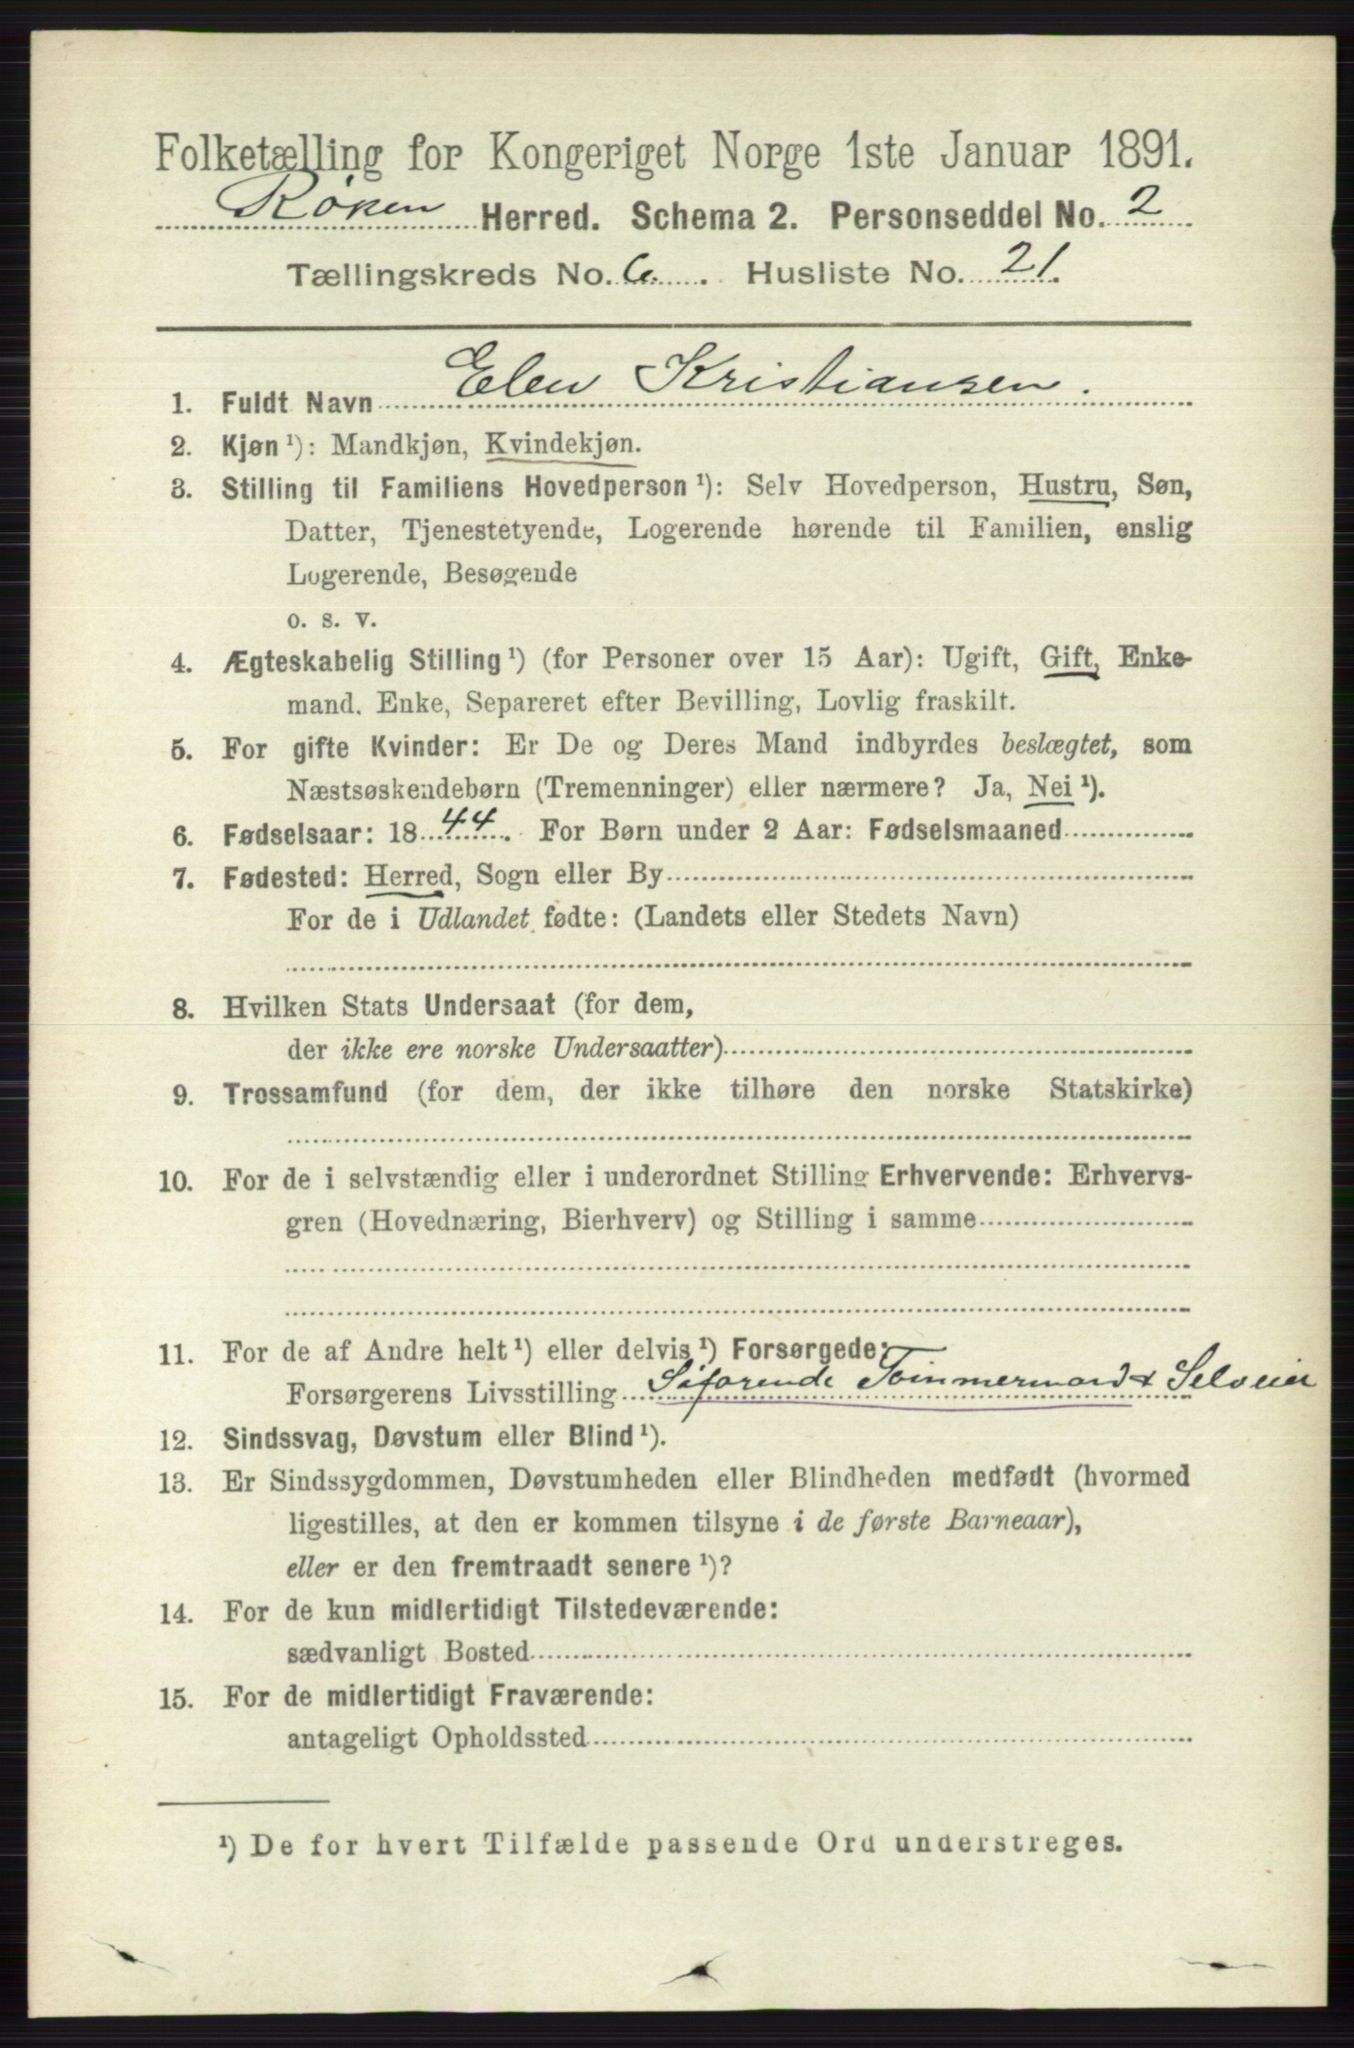 Folketælling for Kongeriget Norge 1ste Januar 1891.
Røken Herred. Schema 2. Personseddel No. 2
Tællingskreds No. 6. Husliste No. 21.
1. Fuldt Navn Elen Kristiansen.
2. Kjøn ¹): Mandkjøn, Kvindekjøn.
3. Stilling til Familiens Hovedperson ¹): Selv Hovedperson, Hustru, Søn,
Datter, Tjenestetyende, Logerende hørende til Familien, enslig
Logerende, Besøgende
o. s. v.
4. Ægteskabelig Stilling ¹) (for Personer over 15 Aar): Ugift, Gift, Enke-
mand, Enke, Separeret efter Bevilling, Lovlig fraskilt.
5. For gifte Kvinder: Er De og Deres Mand indbyrdes beslægtet, som
Næstsøskendebørn (Tremenninger) eller nærmere? Ja, Nei ¹).
6. Fødselsaar: 1844. For Børn under 2 Aar: Fødselsmaaned
7. Fødested: Herred, Sogn eller By
For de i Udlandet fødte: (Landets eller Stedets Navn)
8. Hvilken Stats Undersaat (for dem,
der ikke ere norske Undersaatter)
9. Trossamfund (for dem, der ikke tilhøre den norske Statskirke)
10. For de i selvstændig eller i underordnet Stilling Erhvervende: Erhvervs-
gren (Hovednæring, Bierhverv) og Stilling i samme
11. For de af Andre helt ¹) eller delvis ¹) Forsørgede:
Forsørgerens Livsstilling Søfarende Tømmermand & Selveier
12. Sindssvag, Døvstum eller Blind ¹).
13. Er Sindssygdommen, Døvstumheden eller Blindheden medfødt (hvormed
ligestilles, at den er kommen tilsyne i de første Barneaar),
eller er den fremtraadt senere ¹)?
14. For de kun midlertidigt Tilstedeværende:
sædvanligt Bosted
15. For de midlertidigt Fraværende:
antageligt Opholdssted
¹) De for hvert Tilfælde passende Ord understreges.